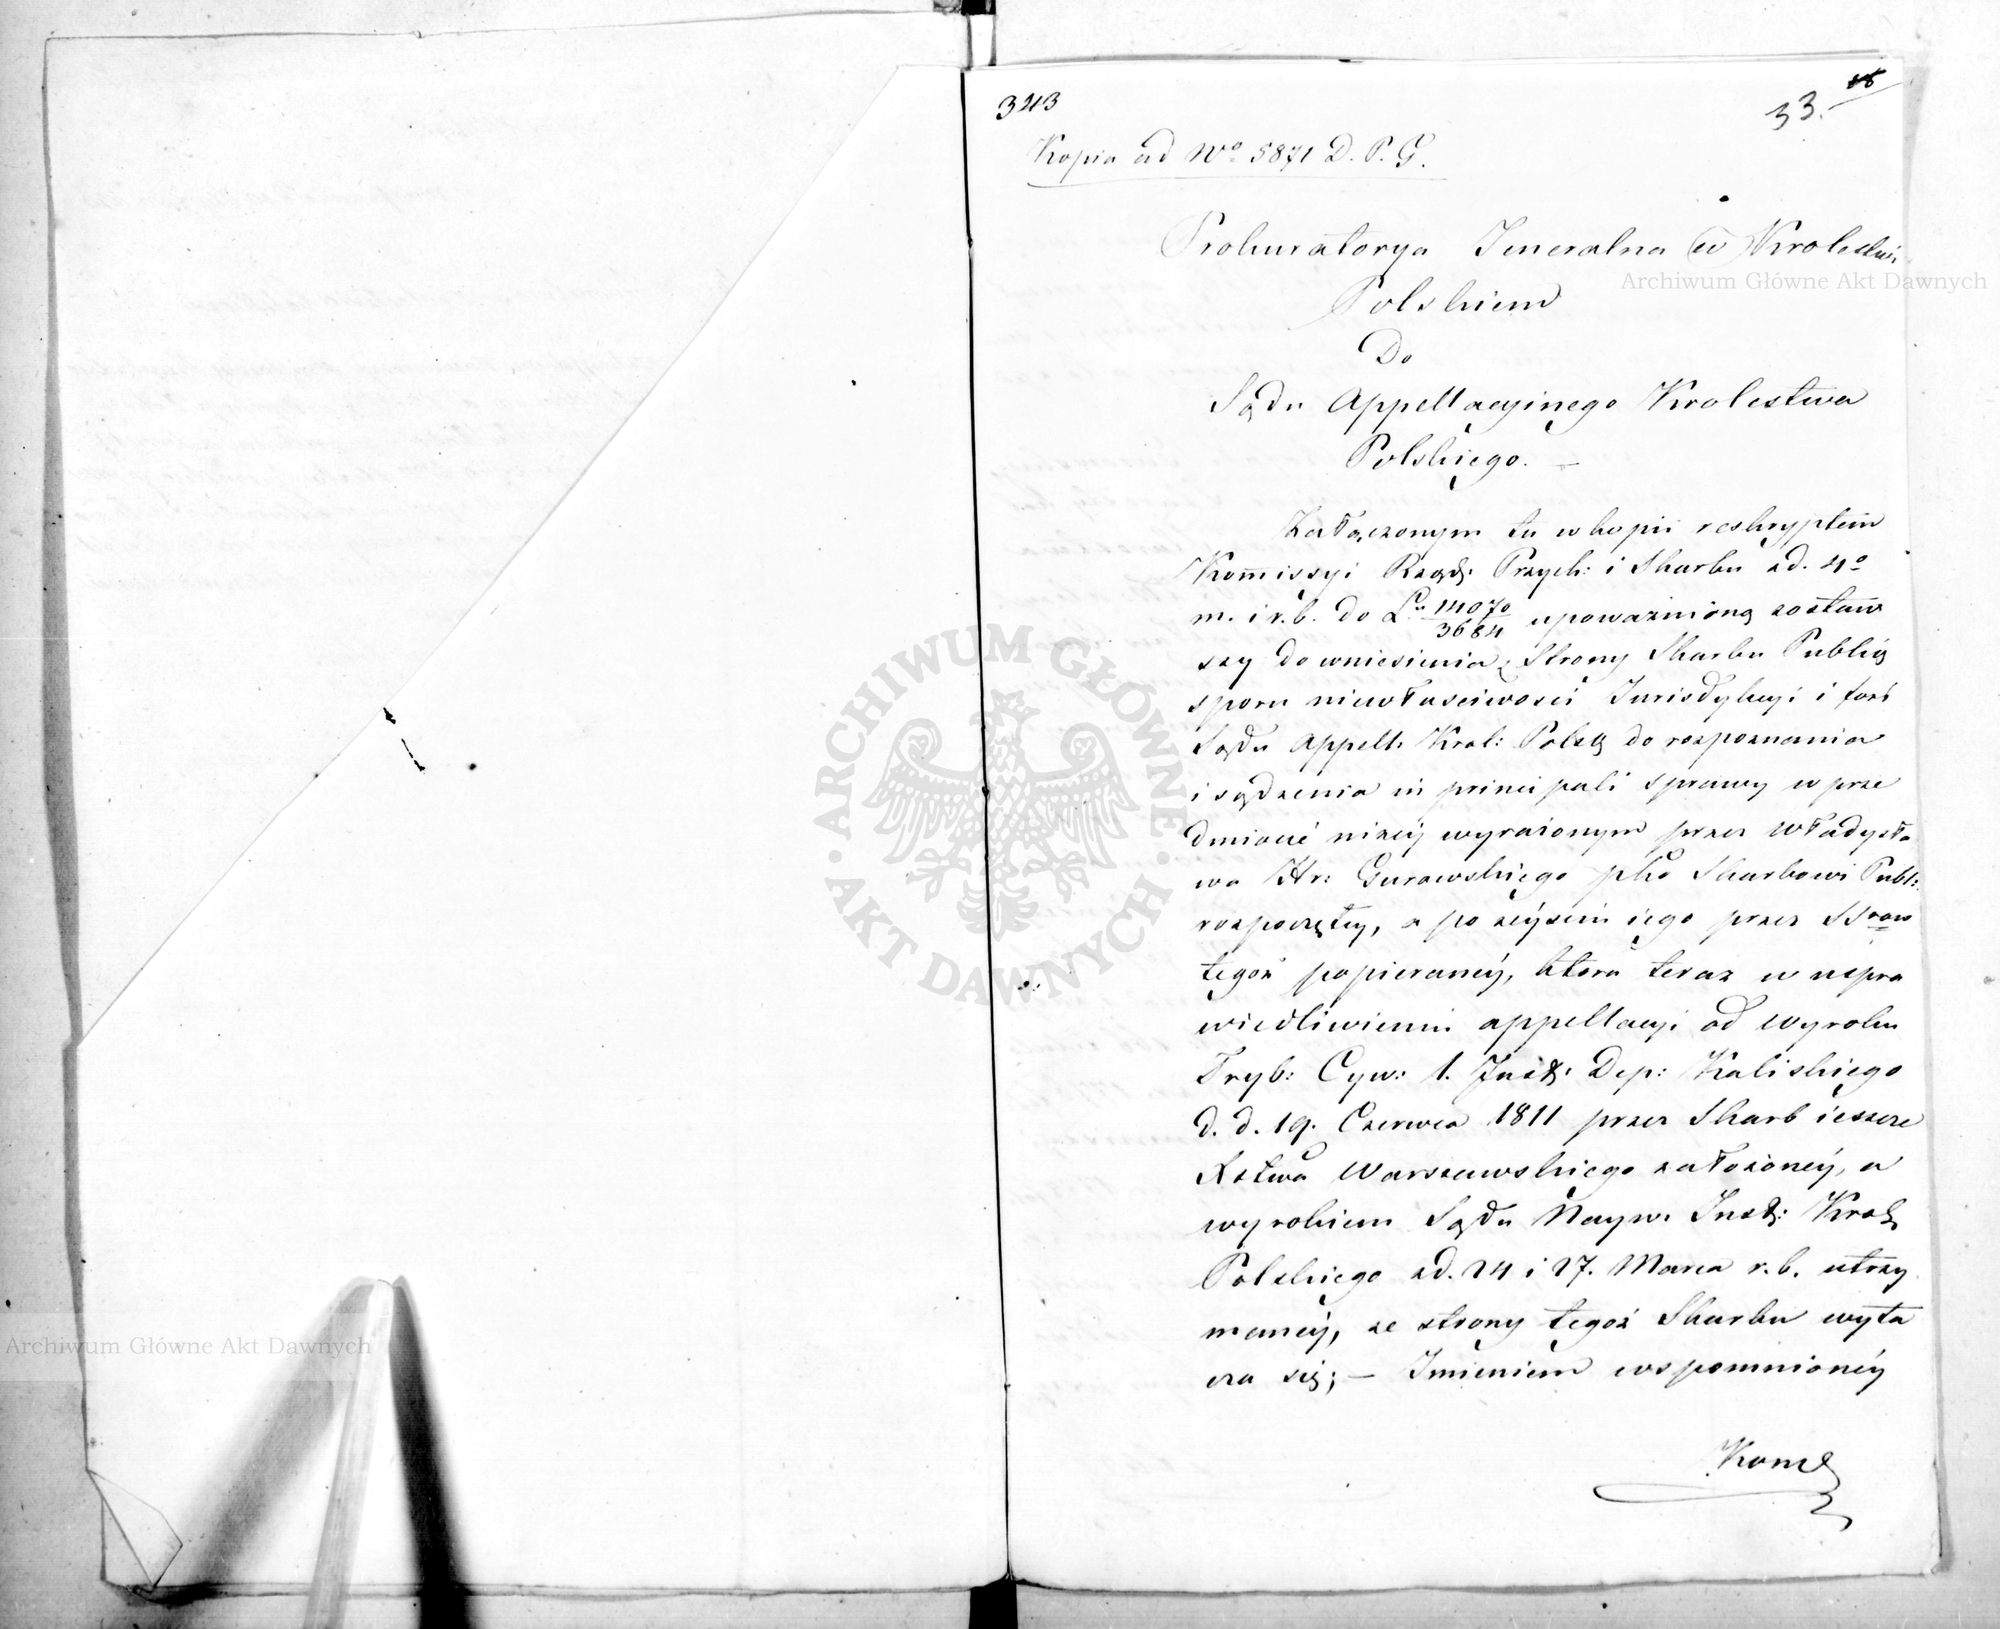 343
33.
Kopia ad No 5871 D. P. G.
Prokuratorya Jeneralna w Krolestwi
Polskiem
Do
Sądu Appellacyinego Krolestwa
Polskiego. —
Załączonym tu w kopii reskryptem
Kommissyi Rządz: Przych: i Skarbu zd. 4o
m. i r. b. do L. 14070/3684 upoważnioną zostaw
szy do wniesienia z Strony Skarbu Publi
sporu niewłasciwosci Jurisdykcyi i fori
Sądu Appell: Krol: Pols do rozpoznania
i sądzenia in principali sprawy w prze
dmiocie niżey wyrażonym przez Władysła
wa Hr: Gurowskiego pko Skarbowi Publ:
rozpoczętey, a po zeyściu iego przez SSrow
tegoż popieraney, ktora teraz w uspra
wiedliwieniu appellacyi od wyroku
Tryb: Cyw: 1. Inst: Dep: Kaliskiego
d. d. 19. Czerwca 1811 przez Skarb ieszcze
Xstwa Warszawskiego założoney, a
wyrokiem Sądu Nayw. Inst: Krol
Polskiego zd. 24 i 27. Marca r. b. utrzy
maney, ze strony tegoż Skarbu wyta
cza się; — Imieniem wspomnioney
Kom
Archiwum Główne Akt Dawnych
Archiwum Główne Akt Dawnych
ARCHIWUM GŁÓWNE
AKT DAWNYCH